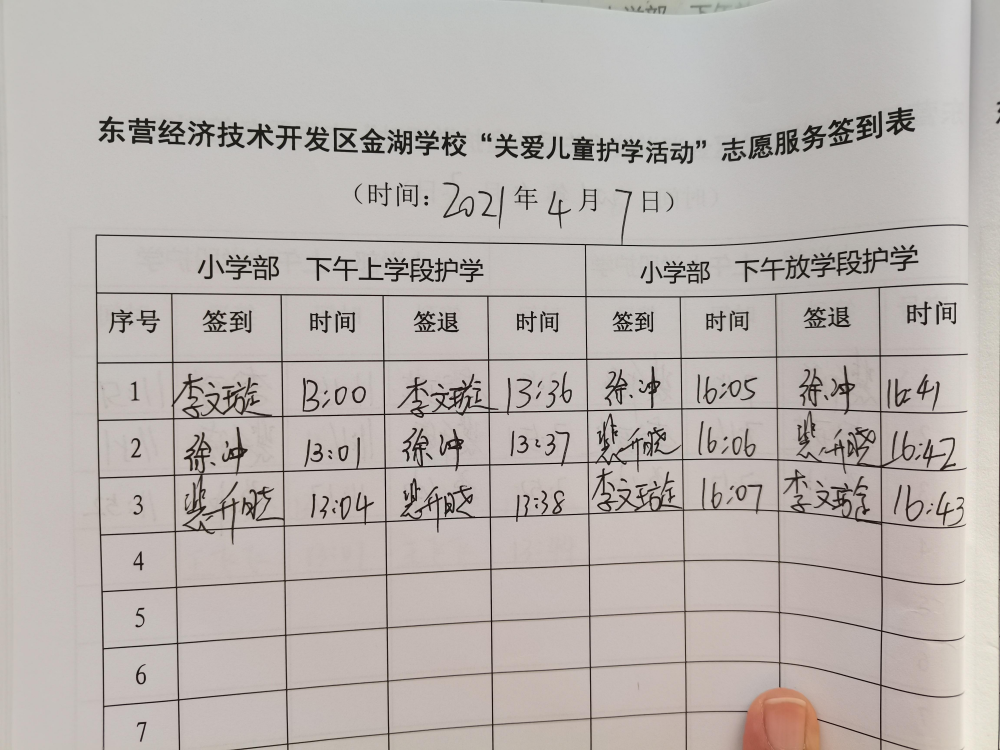 东营经济技术开发区金湖学校“关爱儿童护学活动”志愿服务签到表
（时间：2021年4月7日）
小学部 下午上学段护学 小学部 下午放学段护学
序号 签到 时间 签退 时间 签到 时间 签退 时间
1 李文璇 13:00 李文璇 13:36 徐冲 16:05 徐冲 16:41
2 徐冲 13:01 徐冲 13:37 升晓 16:06 升晓 16:42
3 升晓 13:04 升晓 13:38 李文璇 16:07 李文璇 16:43
4
5
6
7